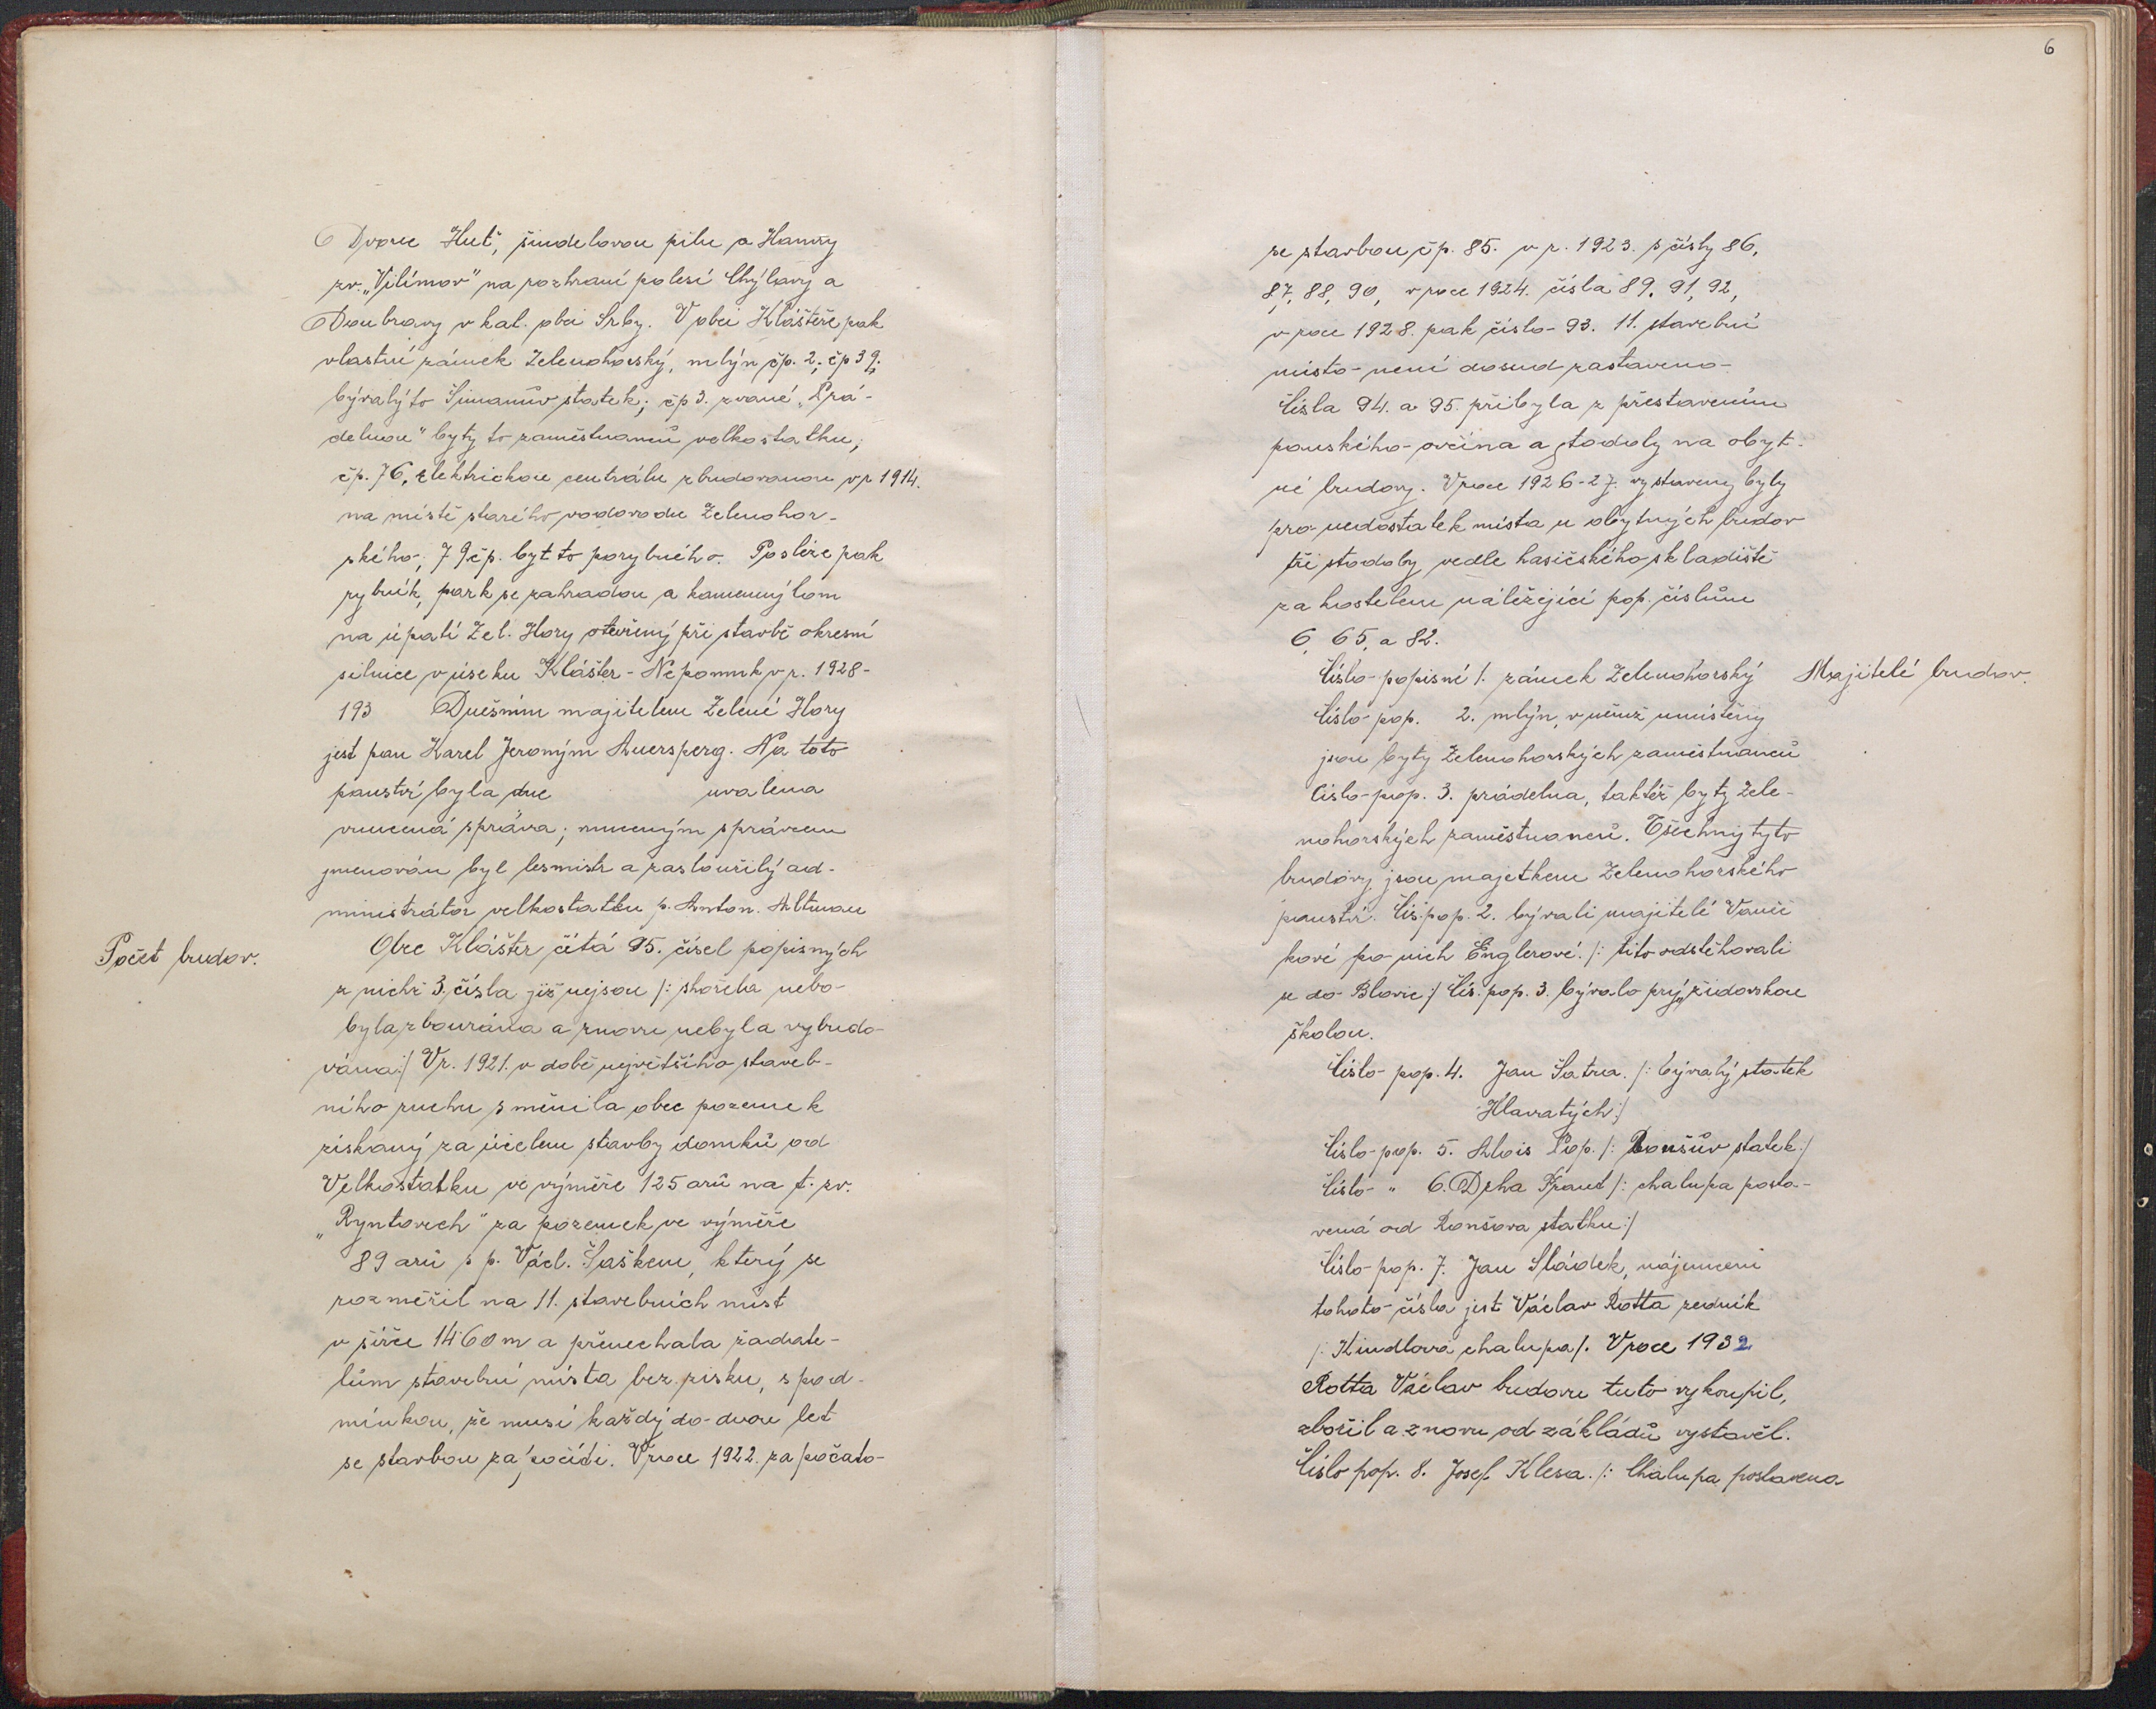 Dvorce Huť, šindelovou pilu a Hamry
zv. „Vilímov" na rozhraní polesí Chýlavy a
Doubravy v kat. obci Srby. V obci Klášteře pak
vlastní zámek Zelenohorský, mlýn čp. 2; čp 39;
bývalý to Šimanův statek; čp 3. zvané „Prá-
delnou" byty to zaměstnanců velkostatku;
čp. 76, elektrickou centrálu zbudovanou v r 1914.
na místě starého vodovodu Zelenohor-
ského; 79 čp. byt to porybného. Posléze pak
rybník, park se zahradou a kamenný lom
na úpatí Zel. Hory otevřený při stavbě okresní
silnice v úseku Klášter - Nepomuk v r. 1928-
193 Dnešním majitelem Zelené Hory
jest pan Karel Jeroným Auersperg. Na toto
panství byla dne uvalena
vnucená správa; nuceným správcem
jmenován byl lesmistr a zasloužilý ad-
ministrátor velkostatku p. Anton. Altman
Počet budov.
Obec Klášter čítá 95. čísel popisných
z nichž 3. čísla již nejsou /: shořela nebo
byla zbourána a znovu nebyla vybudo-
vána :/ V r. 1921. v době největšího staveb-
ního ruchu směnila obec pozemek
získaný za účelem stavby domků od
Velkostatku ve výměře 125 arů na t. zv.
„Ryntovech" za pozemek ve výměře
89 arů s p. Václ. Šaškem, který se
rozměřil na 11. stavebních míst
v šíře 14·60 m a přenechala žadate-
lům stavební místa bez zisku, s pod-
mínkou, že musí každý do dvou let
se stavbou započíti. V roce 1922. započato
6
se stavbou čp. 85. v r. 1923. s čísly 86,
87, 88, 90, v roce 1924. čísla 89, 91, 92,
v roce 1928. pak číslo 93. 11. stavební
místo není dosud zastaveno.
Čísla 94. a 95. přibyla z přestavením
panského ovčína a stodoly na obyt-
né budovy. V roce 1926-27. vystaveny byly
pro nedostatek místa u obytných budov
tři stodoly vedle hasičského skladiště
za kostelem náležející pop. číslům
6, 65, a 82.
Majitelé budov.
Číslo popisné 1. zámek Zelenohorský
Číslo pop. 2. mlýn, v němž umístěny
jsou byty Zelenohorských zaměstnanců
Číslo pop. 3. prádelna, taktéž byty Zele-
nohorských zaměstnanců. Všechny tyto
budovy jsou majetkem Zelenohorského
panství. Čís. pop. 2. bývali majitelé Vaníč
kové po nich Englerové. /: tito odstěhovali
se do Blovic :/ Čís. pop. 3. bývalo prý židovskou
školou.
Číslo pop. 4. Jan Šatra. /: bývalý statek
Hlavatých :/
Číslo pop. 5. Alois Pop. /: Ronšův statek :/
Číslo „ 6. Držka Frant /: chalupa posta-
vená od Ronšova statku :/
Číslo pop. 7. Jan Sládek, nájemcem
tohoto čísla jest Václav Rotta zedník
/: Kindlova chalupa /. V roce 1932
Rotta Václav budovu tuto vykoupil,
zbořil a znovu od základů vystavěl.
Číslo pop. 8. Josef Klesa. /: Chalupa postavena